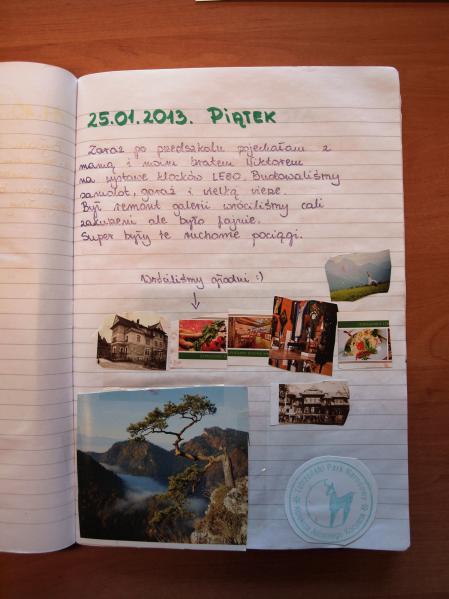 25.01.2013. PIĄTEK
Zaraz po przedszkolu pojechałam z
mamą i moim bratem Wiktorem
na wystawę klocków LEGO. Budowaliśmy
samolot, garaż i wielką wieżę.
Był remont galerii wróciliśmy cali
zakurzeni ale było fajnie.
Super były te ruchome pociągi.
Wróciliśmy głodni :)
Tatrzański Park Narodowy